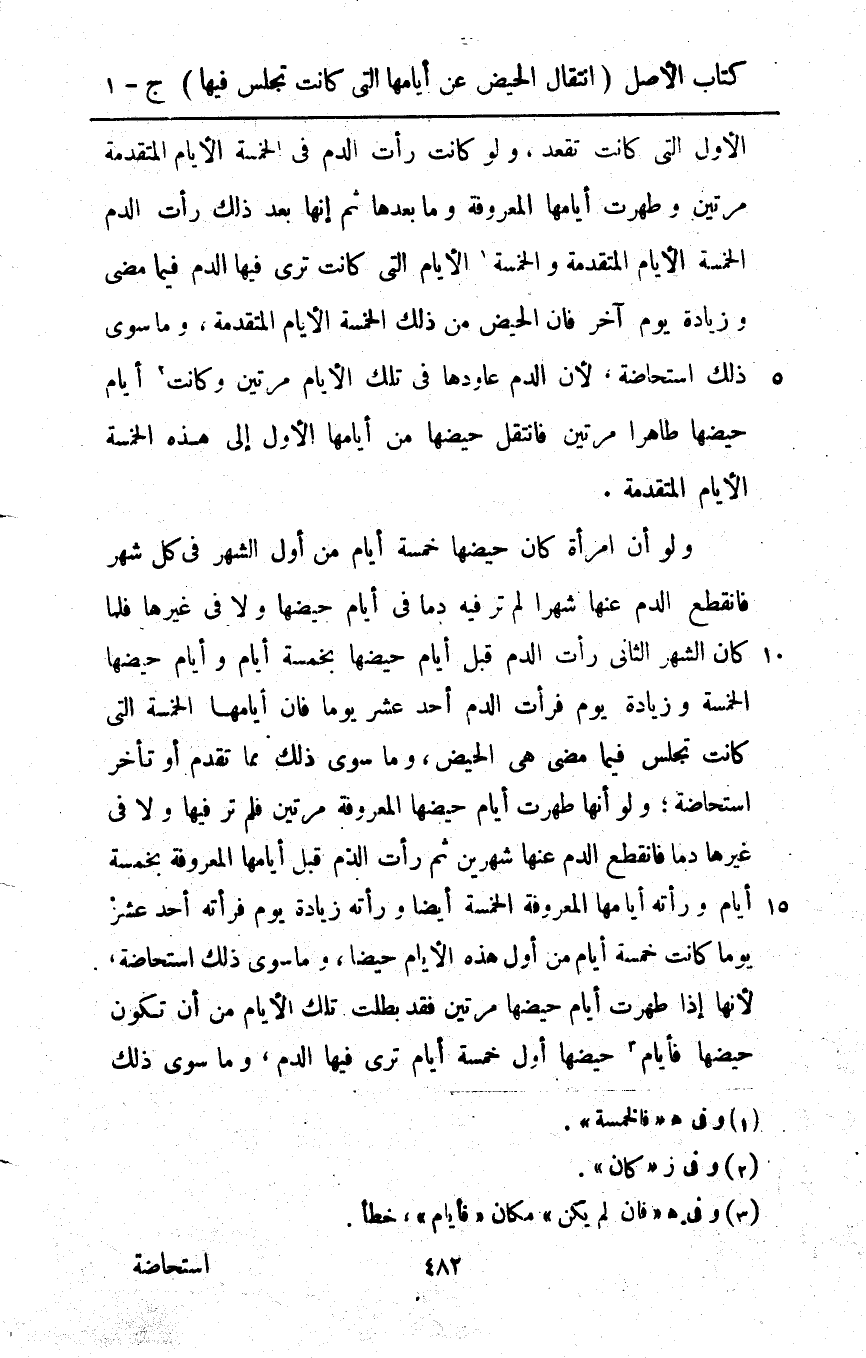 كتاب الأصل ( انتقال الحيض عن أيامها التى كانت تجلس فيها ) ج - ١
الأول التى كانت تقعد، و لو كانت رأت الدم فى الخمسة الأيام المتقدمة
مرتين و طهرت أيامها المعروفة و ما بعدها ثم إنها بعد ذلك رأت الدم
الخمسة الأيام المتقدمة و الخمسة ١ الأيام التى كانت ترى فيها الدم فيما مضى
و زيادة يوم آخر فان الحيض من ذلك الخمسة الأيام المتقدمة، و ما سوى
٥ ذلك استحاضة، لأن الدم عاودها فى تلك الأيام مرتين وكانت ٢ أيام
حيضها طاهرا مرتين فانتقل حيضها من أيامها الأول إلى هذه الخمسة
الأيام المتقدمة .
و لو أن امرأة كان حيضها خمسة أيام من أول الشهر فى كل شهر
فانقطع الدم عنها شهرا لم تر فيه دما فى أيام حيضها و لا فى غيرها فلما
١٠ كان الشهر الثانى رأت الدم قبل أيام حيضها بخمسة أيام و أيام حيضها
الخمسة و زيادة يوم فرأت الدم أحد عشر يوما فان أيامها الخمسة التى
كانت تجلس فيما مضى هى الحيض، و ما سوى ذلك مما تقدم أو تأخر
استحاضة؛ و لو أنها طهرت أيام حيضها المعروفة مرتين فلم تر فيها و لا فى
غيرها دما فانقطع الدم عنها شهرين ثم رأت الدم قبل أيامها المعروفة بخمسة
١٥ أيام و رأته أيامها المعروفة الخمسة أيضا و رأته زيادة يوم فرأته أحد عشر
يوما كانت خمسة أيام من أول هذه الأيام حيضا، و ماسوى ذلك استحاضة،
لأنها إذا طهرت أيام حيضها مرتين فقد بطلت تلك الأيام من أن تكون
حيضها فأيام ٣ حيضها أول خمسة أيام ترى فيها الدم، و ما سوى ذلك
(١) و فى ه «فالخمسة» .
(٢) و فى ز «كان» .
(٣) و فى ه «فان لم يكن» مكان «فأيام»، خطأ .
٤٨٢ استحاضة